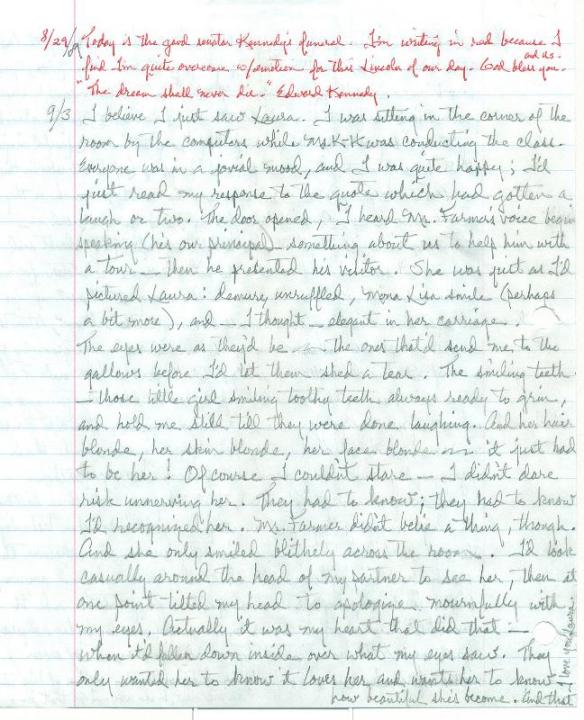 8/29/09 Today is the good senator Kennedy's funeral. I'm writing in red because I
find I'm quite overcome w/emotion for this Lincoln of our day. God bless you. and us.
"The dream shall never die." Edward Kennedy.
9/3 I believe I just saw Laura. I was sitting in the corner of the
room by the computers while Ms. K-K was conducting the class.
Everyone was in a jovial mood, and I was quite happy; I'd
just read my response to the quote which had gotten a
laugh or two. The door opened, I heard Mr. Farmer's voice begin
speaking (he's our principal) — something about us to help him with
a tour — then he presented his visitor. She was just as I'd
pictured Laura: demure, unruffled, Mona Lisa smile (perhaps
a bit more), and — I thought — elegant in her carriage.
The eyes were as they'd be — the ones that'd send me to the
gallows before I'd let them shed a tear. The smiling teeth
— those little girl smiling toothy teeth always ready to grin,
and hold me still till they were done laughing. And her hair
blonde, her skin blonde, her face blonde — it just had
to be her! Of course I couldn't stare — I didn't dare
risk unnerving her. They had to know; they had to know
I'd recognized her. Mr. Farmer didn't belie a thing, though.
And she only smiled blithely across the room. I'd look
casually around the head of my partner to see her, then at
one point tilted my head to apologize mournfully with
my eyes. Actually it was my heart that did that —
when it'd fallen down inside over what my eyes saw. They
only wanted her to know it loves her and wants her to know
how beautiful she's become. And that
I love you, Laura.